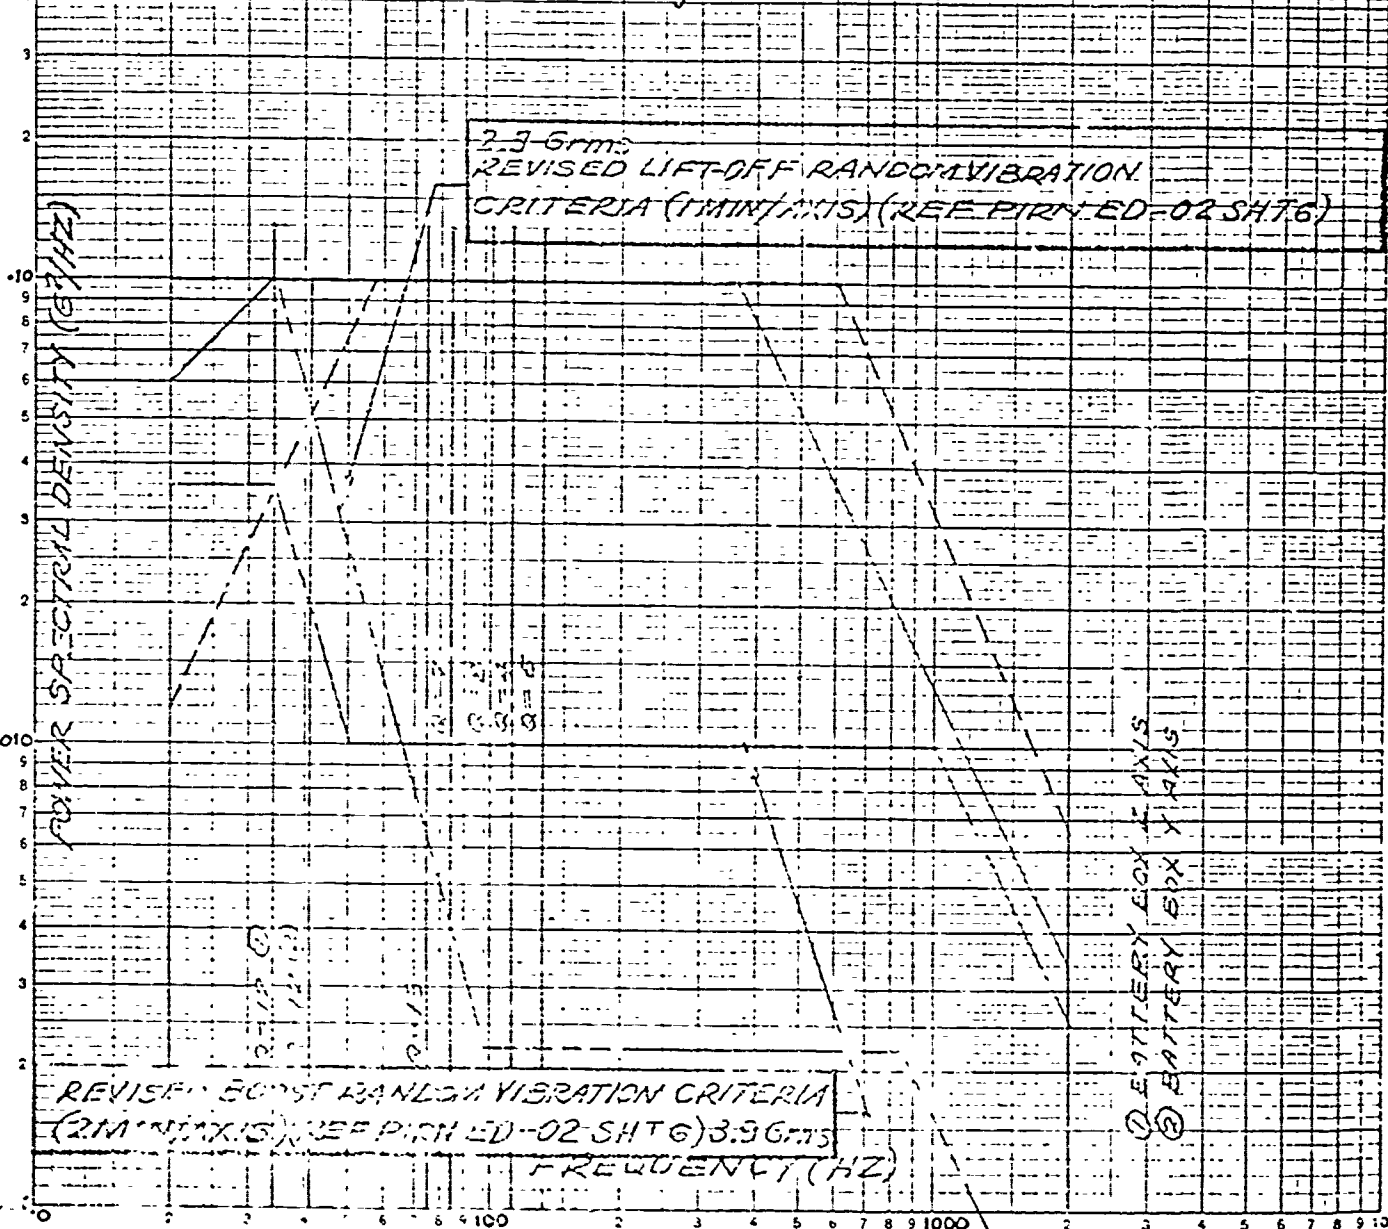 REVISED LIFT-OFF RANDOM VIBRATION
CRITERIA (1 MIN/AXIS) (REF PIRN ED-02 SHT 6)
POWER SPECTRAL DENSITY (G²/HZ)
3
2
.10
9
8
7
6
5
4
3
2
010
9
8
7
6
5
4
3
2
Q=15
① BATTERY BOX Z AXIS
② BATTERY BOX Y AXIS
REVISED BOOST RANDOM VIBRATION CRITERIA
(2 MIN/AXIS) (REF PIRN ED-02 SHT 6) 3.9 Grms
FREQUENCY (HZ)
100 2 3 4 5 6 7 8 9 1000 2 3 4 5 6 7 8 9